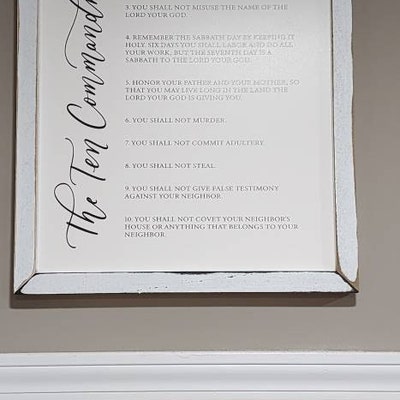 The Ten Command
3. YOU SHALL NOT MISUSE THE NAME OF THE
LORD YOUR GOD.
4. REMEMBER THE SABBATH DAY BY KEEPING IT
HOLY. SIX DAYS YOU SHALL LABOR AND DO ALL
YOUR WORK, BUT THE SEVENTH DAY IS A
SABBATH TO THE LORD YOUR GOD.
5. HONOR YOUR FATHER AND YOUR MOTHER, SO
THAT YOU MAY LIVE LONG IN THE LAND THE
LORD YOUR GOD IS GIVING YOU.
6. YOU SHALL NOT MURDER.
7. YOU SHALL NOT COMMIT ADULTERY.
8. YOU SHALL NOT STEAL.
9. YOU SHALL NOT GIVE FALSE TESTIMONY
AGAINST YOUR NEIGHBOR
10. YOU SHALL NOT COVET YOUR NEIGHBOR'S
HOUSE OR ANYTHING THAT BELONGS TO YOUR
NEIGHBOR